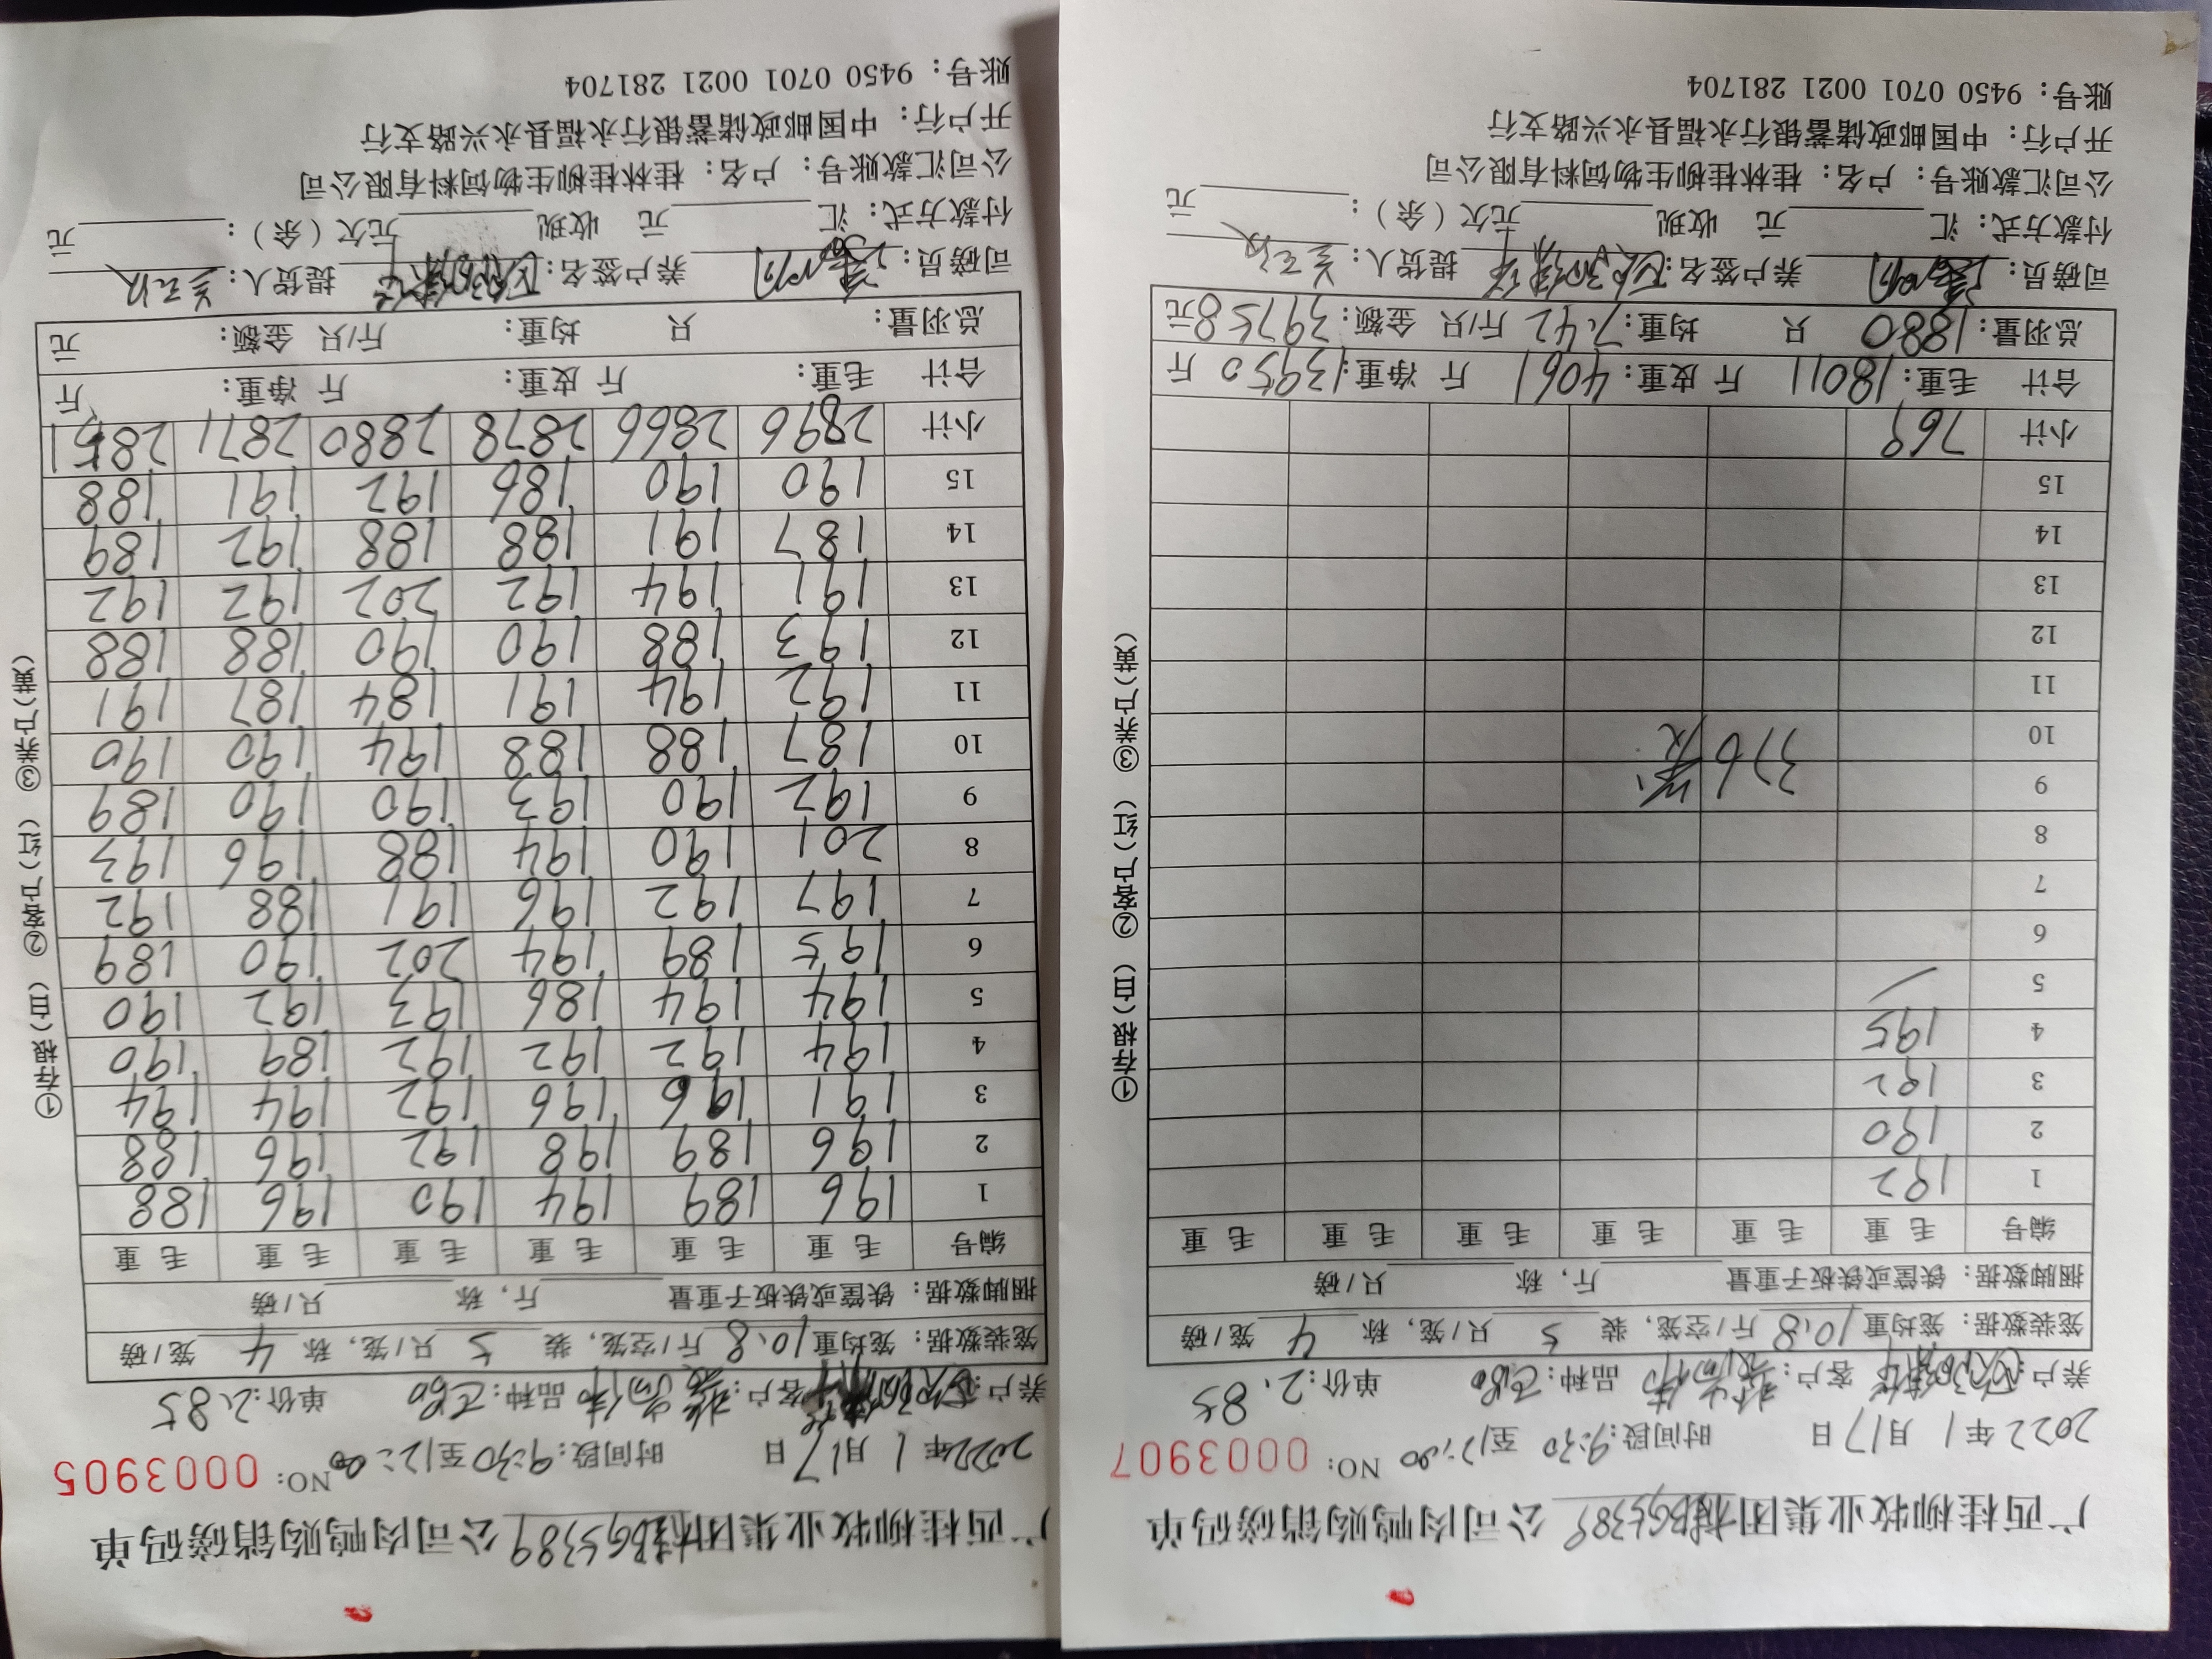 广西桂柳牧业集团桂BG5389公司肉鸭购销磅码单
2022年1月17日 时间段:9:30至12:00 NO: 0003907
养户: 客户: 品种: 单价:2.85
笼装数据: 笼均重10.8斤/空笼, 装5只/笼, 称4笼/磅
捆脚数据: 铁筐或铁板子重量 斤, 称 只/磅
编号 毛重 毛重 毛重 毛重 毛重 毛重
1 192
2 190
3 192
4 195
5
6
7
8
9
10 376笼
11
12
13
14
15
小计 769
合计 毛重:18011斤 皮重:4061斤 净重:13950斤
总羽量:1880只 均重:7.42斤/只 金额:39758元
司磅员: 养户签名: 提货人:
付款方式: 汇 元 收现 元欠(余): 元
公司汇款账号: 户名: 桂林桂柳生物饲料有限公司
开户行: 中国邮政储蓄银行永福县永兴路支行
账号: 9450 0701 0021 281704
①存根(白) ②客户(红) ③养户(黄)
广西桂柳牧业集团桂BG5389公司肉鸭购销磅码单
2022年1月17日 时间段:9:30至12:00 NO: 0003905
养户: 客户: 品种: 单价:2.85
笼装数据: 笼均重10.8斤/空笼, 装5只/笼, 称4笼/磅
捆脚数据: 铁筐或铁板子重量 斤, 称 只/磅
编号 毛重 毛重 毛重 毛重 毛重 毛重
1 196 189 194 190 196 188
2 196 189 198 192 196 188
3 191 196 196 192 194 194
4 194 192 192 192 189 190
5 194 194 186 193 192 190
6 195 189 194 202 190 189
7 197 192 196 191 188 192
8 201 190 194 188 196 193
9 192 190 193 190 190 189
10 187 188 188 194 190 190
11 192 194 191 184 187 191
12 193 188 190 190 188 188
13 191 194 192 202 192 192
14 187 191 188 188 192 189
15 190 190 186 192 191 188
小计 2896 2866 2878 2880 2871 2851
合计 毛重: 斤 皮重: 斤 净重: 斤
总羽量: 只 均重: 斤/只 金额: 元
司磅员: 养户签名: 提货人:
付款方式: 汇 元 收现 元欠(余): 元
公司汇款账号: 户名: 桂林桂柳生物饲料有限公司
开户行: 中国邮政储蓄银行永福县永兴路支行
账号: 9450 0701 0021 281704
①存根(白) ②客户(红) ③养户(黄)